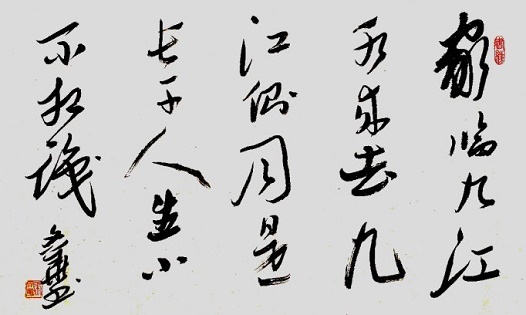 家临九江
水来去九
江侧同是
长干人生小
不相识